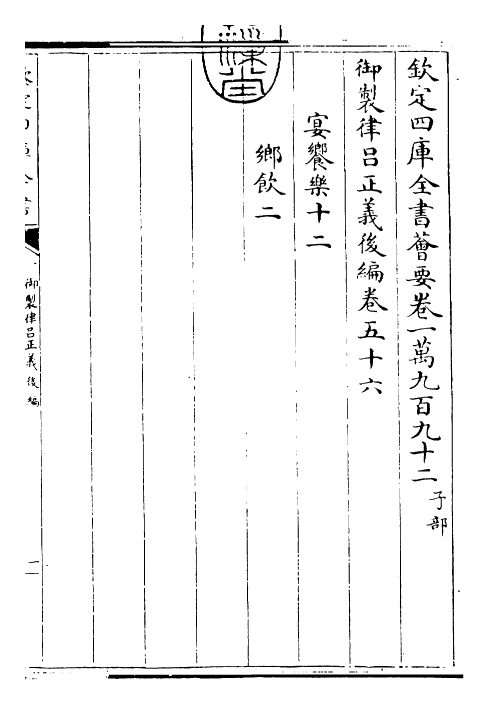 欽定四庫全書薈要卷一萬九百九十二 子部
御製律呂正義後編卷五十六
宴饗樂十二
鄉飲二
御製律呂正義後編